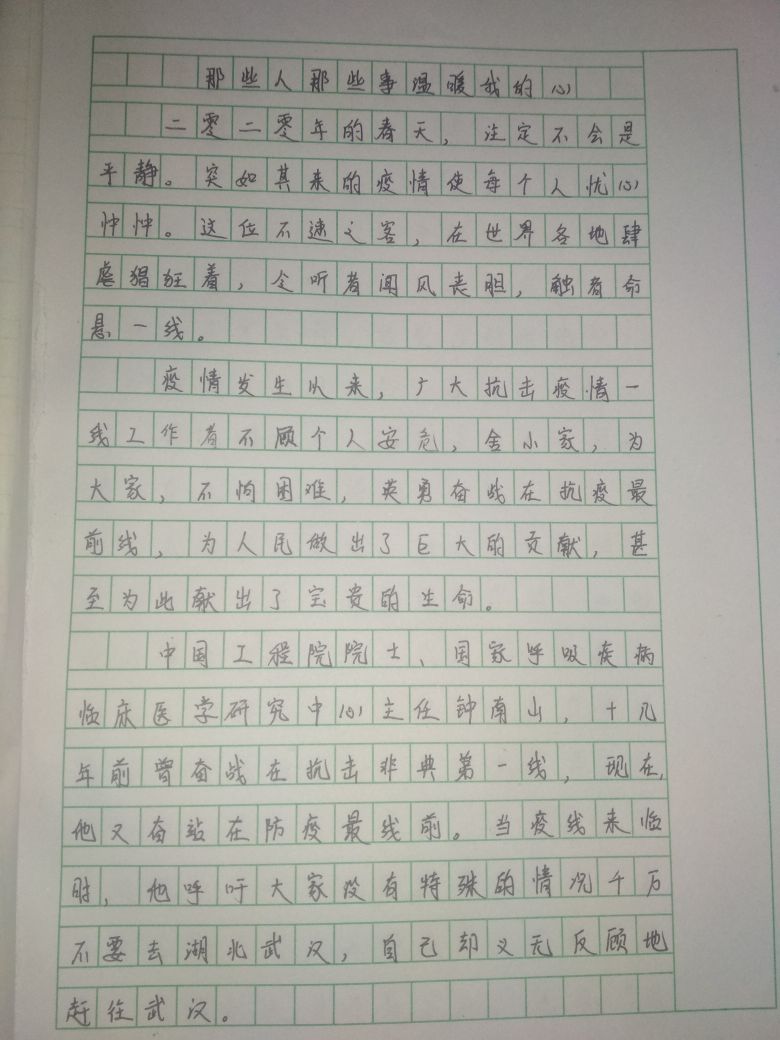 那些人那些事温暖我的心
二零二零年的春天，注定不会是
平静。突如其来的疫情使每个人忧心
忡忡。这位不速之客，在世界各地肆
虐猖狂着，令听者闻风丧胆，触者命
悬一线。
疫情发生以来，广大抗击疫情一
线工作者不顾个人安危，舍小家，为
大家，不怕困难，英勇奋战在抗疫最
前线，为人民做出了巨大的贡献，甚
至为此献出了宝贵的生命。
中国工程院院士、国家呼吸疾病
临床医学研究中心主任钟南山，十几
年前曾奋战在抗击非典第一线，现在，
他又奋站在防疫最线前。当疫线来临
时，他呼吁大家没有特殊的情况千万
不要去湖北武汉，自己却义无反顾地
赶往武汉。